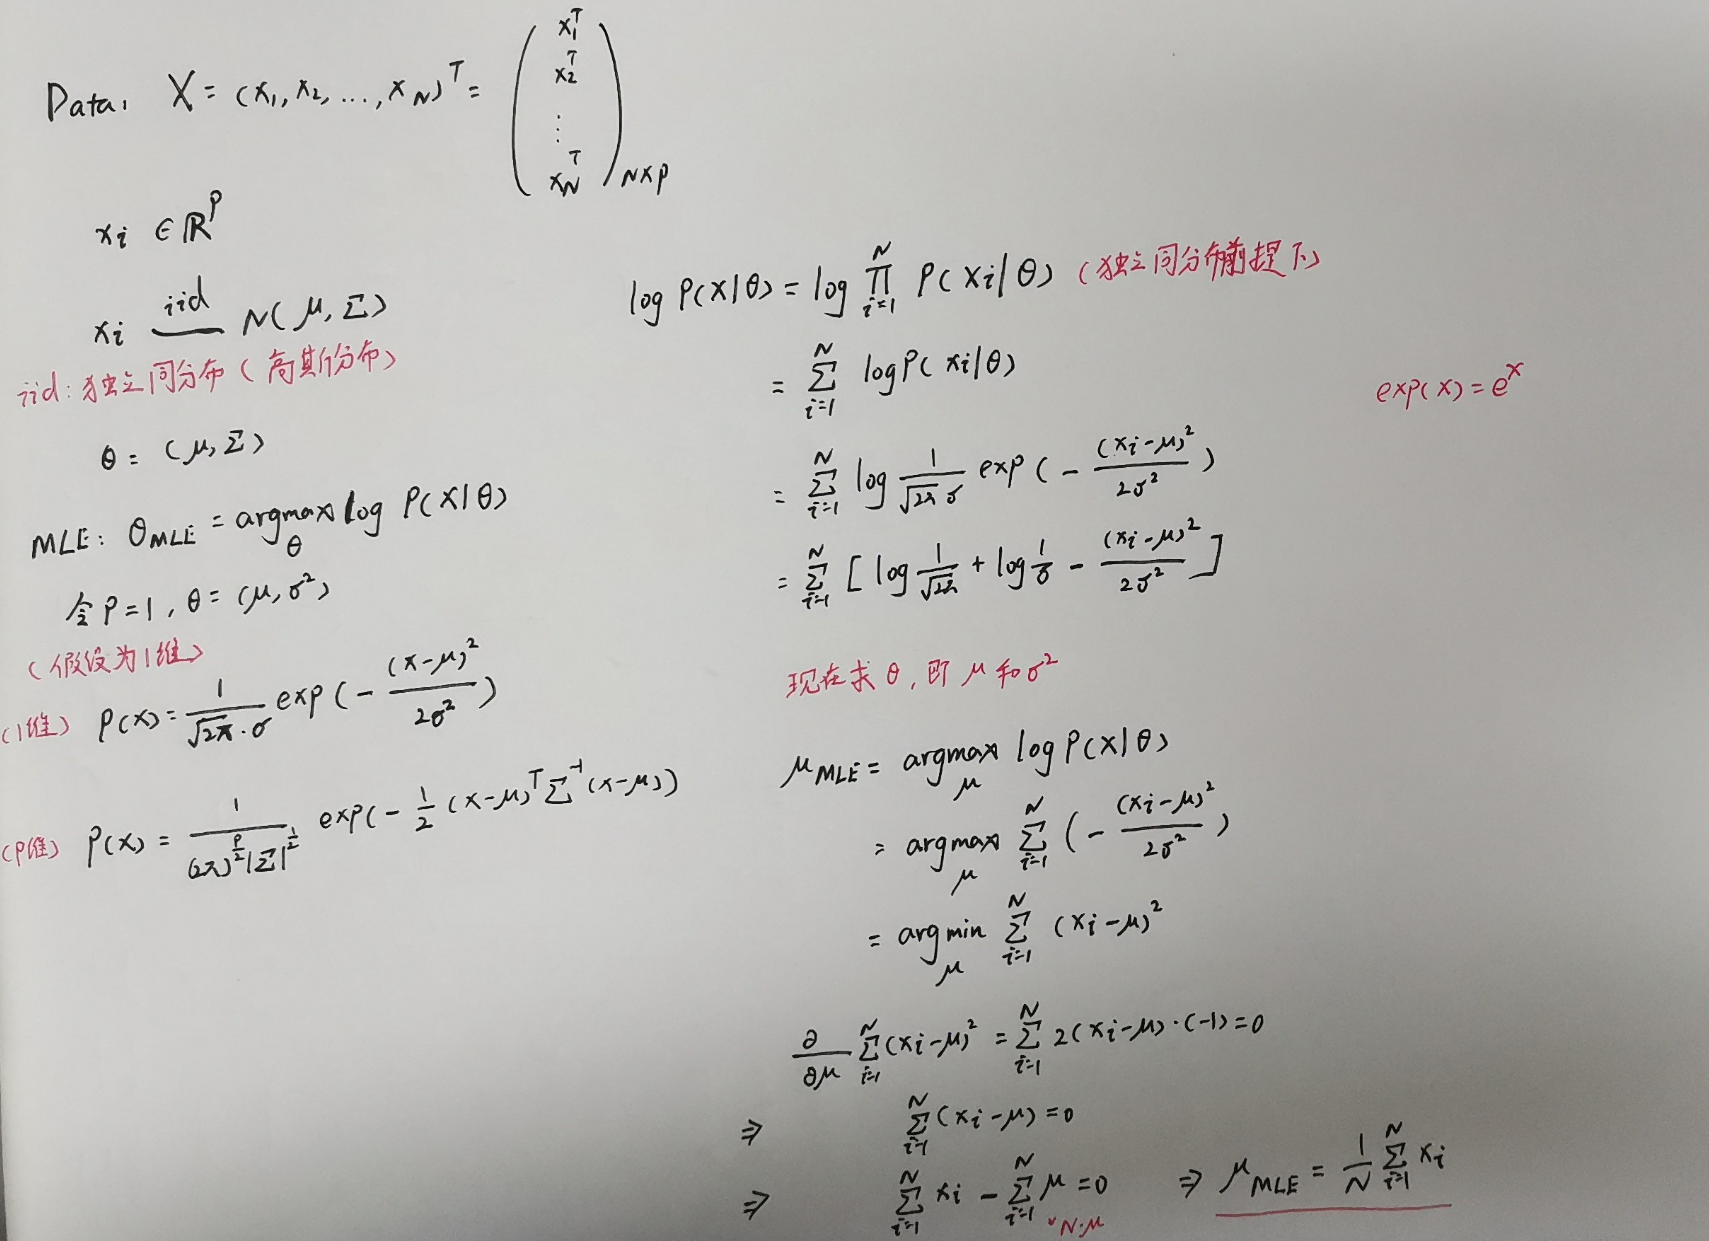 Data: X = (x₁, x₂, ..., x_N)ᵀ = ( x₁ᵀ x₂ᵀ ⋮ x_Nᵀ )_{N×p}
xᵢ ∈ ℝᵖ
xᵢ iid N(μ, Σ)
iid: 独立同分布 (高斯分布)
θ = (μ, Σ)
MLE: θ_MLE = argmax_θ log P(X|θ)
令 p=1, θ = (μ, σ²)
(假设为1维)
(1维) p(x) = 1/(√2π · σ) exp(- (x-μ)²/(2σ²))
(p维) p(x) = 1/((2π)^{p/2} |Σ|^{1/2}) exp(- 1/2 (x-μ)ᵀ Σ⁻¹ (x-μ))
log P(X|θ) = log ∏_{i=1}^{N} P(xᵢ|θ) (独立同分布前提下)
= Σ_{i=1}^{N} log P(xᵢ|θ)
exp(x) = eˣ
= Σ_{i=1}^{N} log 1/(√2π σ) exp(- (xᵢ-μ)²/(2σ²))
= Σ_{i=1}^{N} [log 1/√2π + log 1/σ - (xᵢ-μ)²/(2σ²)]
现在求 θ, 即 μ 和 σ²
μ_MLE = argmax_μ log P(X|θ)
= argmax_μ Σ_{i=1}^{N} (- (xᵢ-μ)²/(2σ²))
= argmin_μ Σ_{i=1}^{N} (xᵢ-μ)²
∂/∂μ Σ_{i=1}^{N} (xᵢ-μ)² = Σ_{i=1}^{N} 2(xᵢ-μ)·(-1) = 0
⇒ Σ_{i=1}^{N} (xᵢ-μ) = 0
⇒ Σ_{i=1}^{N} xᵢ - Σ_{i=1}^{N} μ = 0 ⇒ μ_MLE = 1/N Σ_{i=1}^{N} xᵢ
N·μ